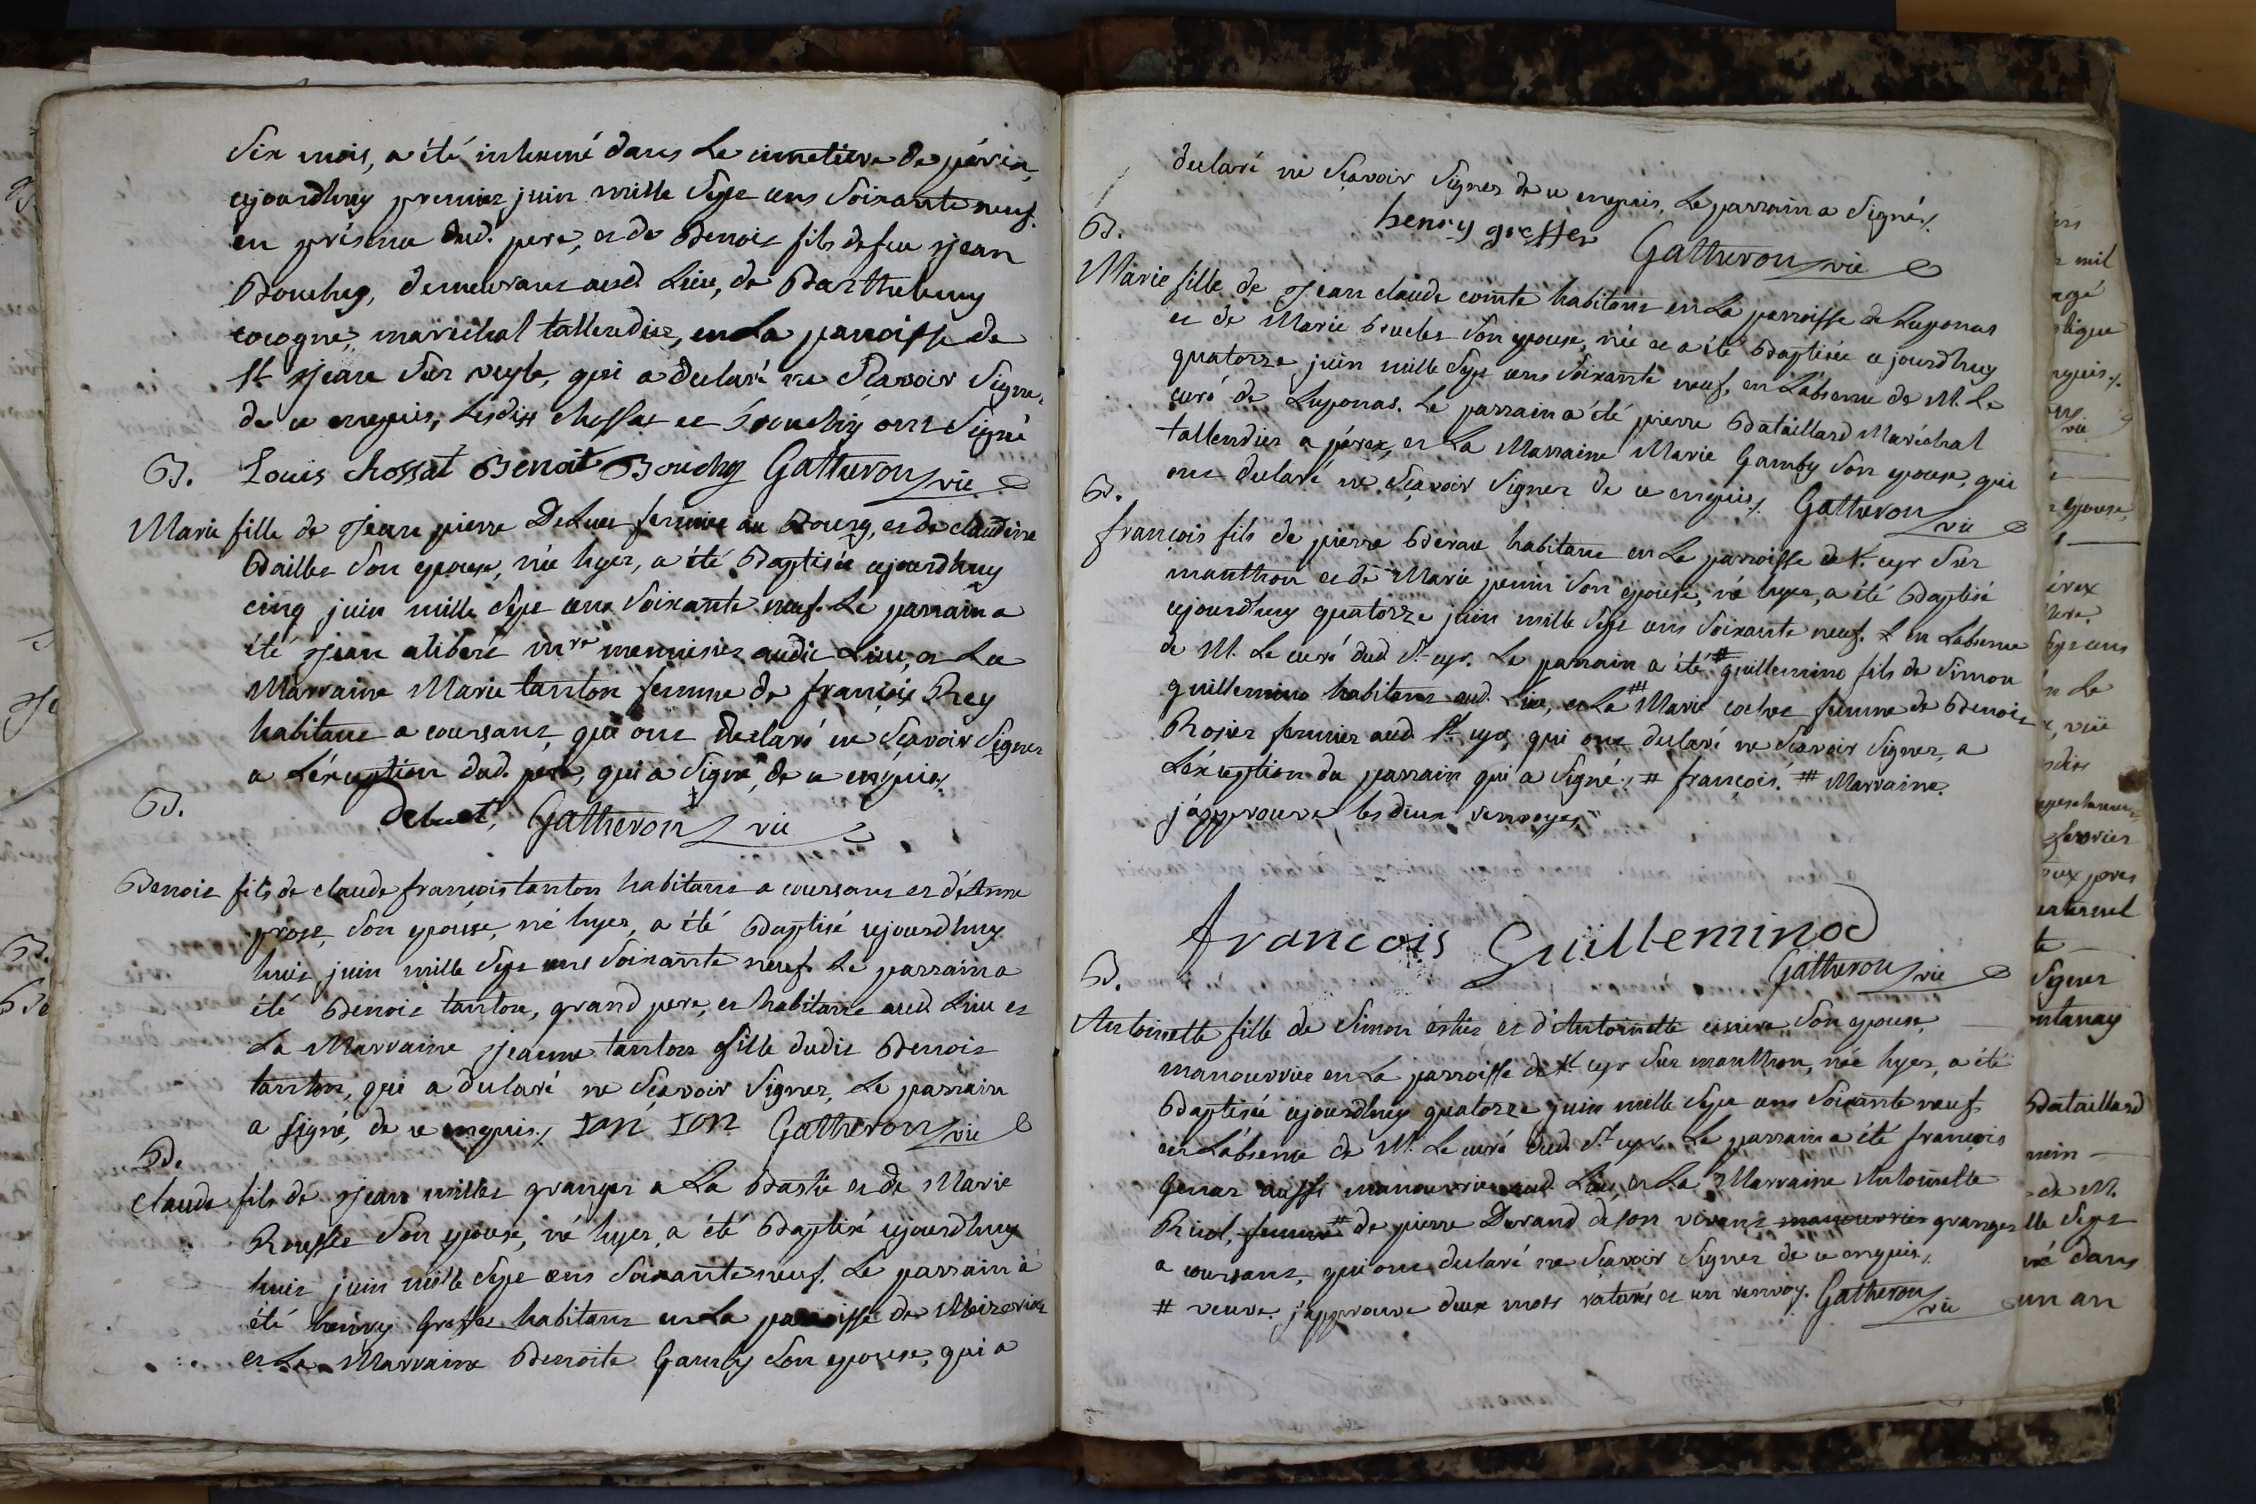 Six mois, a été inhumé dans Le cimetiere de pérex,
cejourdhuy premier juin mille Sept cens Soixante neuf.
en présence dud. pere, et de Benoit fils de feu Jean
Bouchy, demeurant aud. Lieu, de Barthelemy
cocogne, maréchal tallendier, en La paroisse de
St Jean Sur veyle, qui a declaré ne Sçavoir Signer,
de ce enquis, Lesdits chossat et Bouchy ont Signé
Louis chossat Benoit Bouchy Gatheron vic
B.
Marie fille de Jean pierre Deluet fermier au Bourg, et de claudine
Baillet Son epouse, née hyer, a été Baptisée cejourdhuy
cinq juin mille Sept cens Soixante neuf. Le parrain a
été Jean alibert mre menuisier audit Lieu, et La
Marraine Marie tanton femme de françois Rey
habitant a coursant, qui ont declaré ne Sçavoir Signer
a L'éxception dud. pere, qui a Signé, de ce enquis
Deluet, Gatheron vic
B.
Benoit fils de claude françois tanton habitant a coursant et d'Anne
prost, Son epouse, né hyer, a été Baptisé cejourdhuy
huit juin mille Sept cens Soixante neuf. Le parrain a
été Benoit tanton, grand pere, et habitant aud. Lieu et
La Marraine Jeanne tanton fille dudit Benoit
tanton, qui a declaré ne Sçavoir Signer, Le parrain
a signé, de ce enquis, Tan Ton Gatheron vic
B.
claude fils de Jean millet granger a La Bastie et de Marie
Rousset Son epouse, né hyer, a été Baptisé cejourdhuy
huit juin mille Sept cens Soixante neuf. Le parrain a
été henry Greffet habitant en La paroisse de Mezeriat
et La Marraine Benoite Gamby Son epouse, qui a
declaré ne Sçavoir Signer de ce enquis, Le parrain a Signé
henry greffet Gatheron vic
B.
Marie fille de Jean claude comte habitant en La parroisse de Luponas
et de Marie Brochet Son epouse, née et a été Baptisée cejourdhuy
quatorze juin mille Sept cens Soixante neuf, en L'absence de M. Le
curé de Luponas. Le parrain a été pierre Bataillard Maréchal
tallendier a pérex, et La Marraine Marie Gamby Son epouse, qui
ont declaré ne Sçavoir Signer de ce enquis. Gatheron vic
B.
françois fils de pierre Beraud habitant en La parroisse de St. cyr Sur
manthon et de Marie penin Son epouse, né hyer, a été Baptisé
cejourdhuy quatorze juin mille Sept cens Soixante neuf. en L'absence
de M. Le curé dud St. cyr. Le parrain a été # guillemino fils de Simon
guillemino habitant aud. Lieu, et La ## Marie cochet femme de Benoit
Rozier fermier aud St cyr, qui ont declaré ne Sçavoir Signer, a
L'éxception du parrain qui a Signé. # françois. ## Marraine.
j'approuve les deux renvoyes
francois Guilleminod
Gatheron vic
B.
Antoinette fille de Simon estier et d'Antoinette Son epouse,
manouvrier en La parroisse de St. cyr Sur manthon, née hyer, a été
Baptisée cejourdhuy quatorze juin mille Sept cens Soixante neuf.
en L'absence de M. Le curé dud. St cyr. Le parrain a été françois
aussi manouvrier aud. Lieu, et La Marraine Antoinette
femme # de pierre Durand de Son vivant manouvrier granger
a coursant, qui ont declaré ne Sçavoir Signer de ce enquis,
# veuve. j'approuve deux mots raturés et un renvoy. Gatheron vic